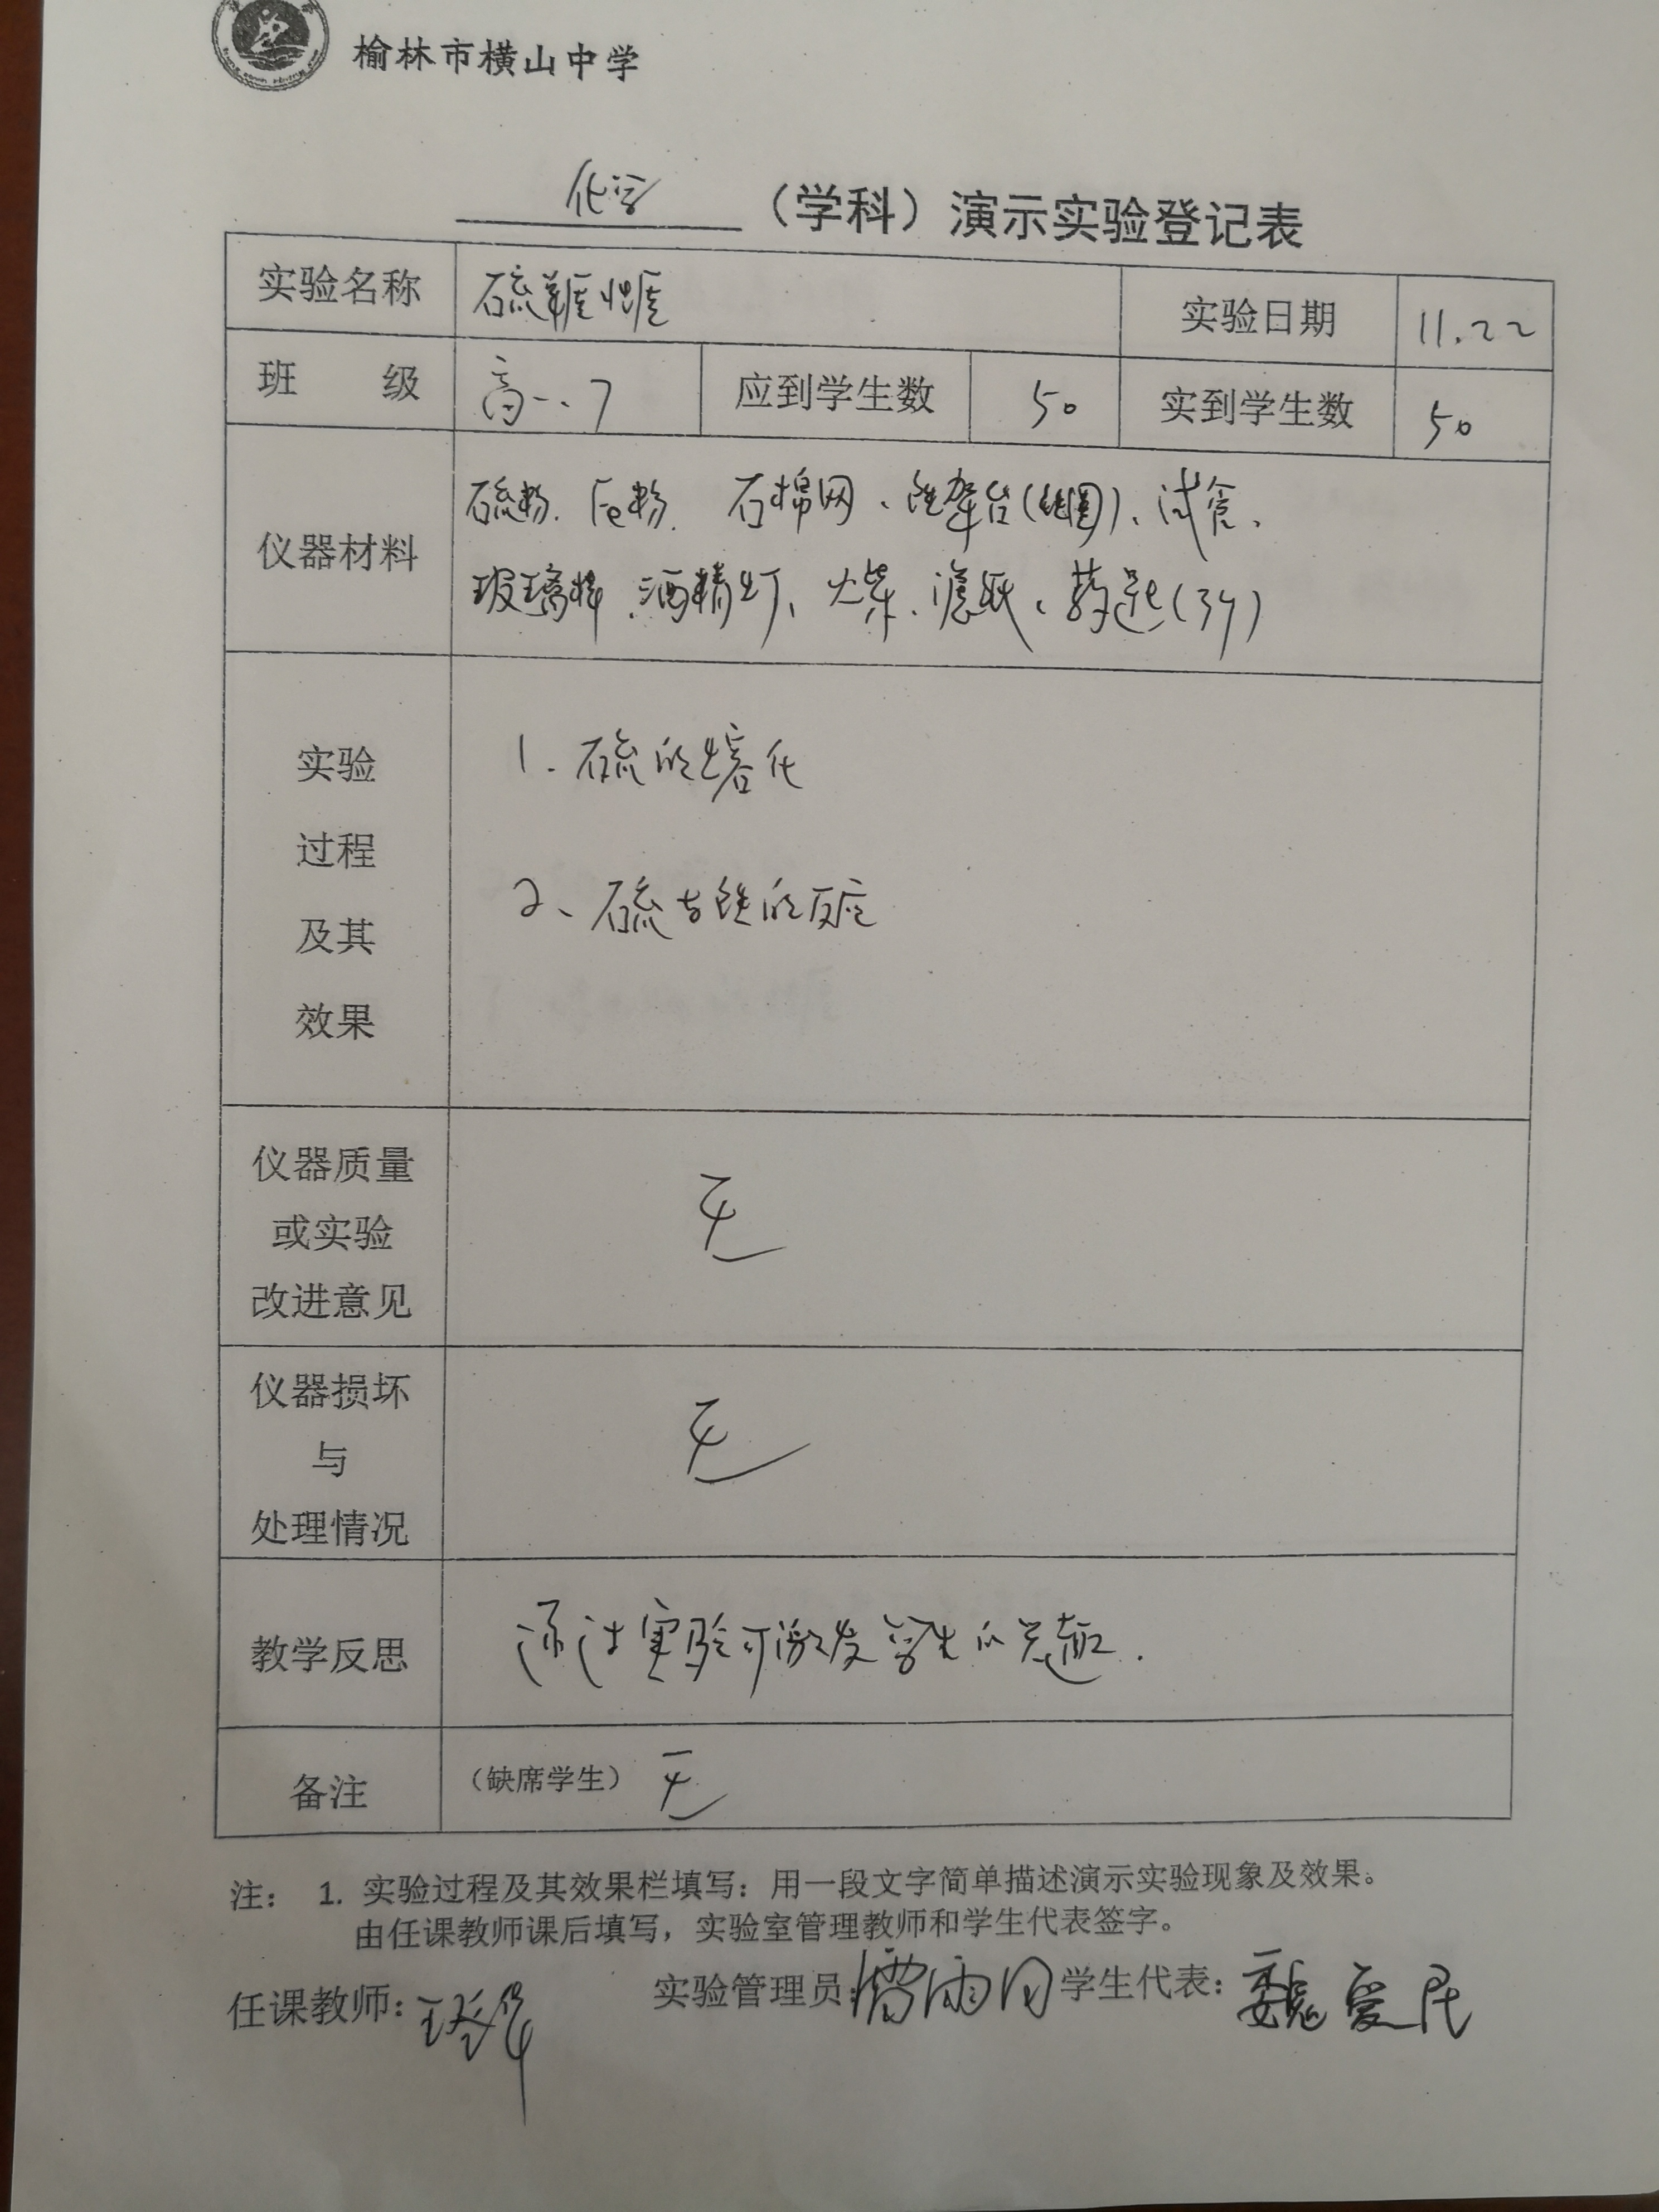 榆林市横山中学
化学（学科）演示实验登记表
实验名称 硫 性质 实验日期 11.22
班 级 高一.7 应到学生数 50 实到学生数 50
仪器材料
硫粉、Fe粉、石棉网、铁架台(铁圈)、试管、
玻璃棒、酒精灯、火柴、滤纸、药匙(3个)
实验
过程
及其
效果
1. 硫的熔化
2、硫与铁的反应
仪器质量
或实验
改进意见
无
仪器损坏
与
处理情况
无
教学反思 通过实验可激发学生的兴趣.
备注 （缺席学生）无
注： 1. 实验过程及其效果栏填写：用一段文字简单描述演示实验现象及效果。
由任课教师课后填写，实验室管理教师和学生代表签字。
任课教师： 实验管理员： 学生代表：魏爱民